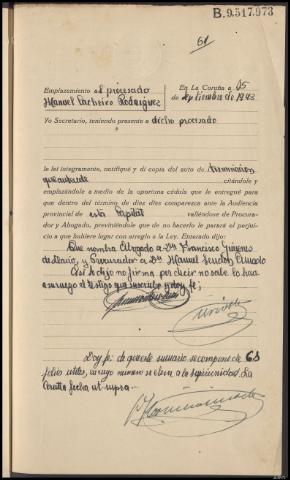 B.9.517.973
61
Emplazamiento al procesado
Manuel Cacheiro Rodriguez
En La Coruña a 15
de Septiembre de 1943
Yo Secretario, teniendo presente a dicho procesado
le leí íntegramente, notifiqué y di copia del auto de terminacion
que antecede citándole y
emplazándole a medio de la oportuna cédula que le entregué para
que dentro del término de diez días comparezca ante la Audiencia
provincial de esta Capital valiéndose de Procura-
dor y Abogado, previniéndole que de no hacerlo le parará el perjui-
cio a que hubiere lugar con arreglo a la Ley. Enterado dijo:
Que nombra Abogado a Don Francisco
y Procurador a Don Manuel
Asi lo dijo no firma por decir no sabe lo hace
a su ruego el testigo que suscribe y doy fe;
Doy fe: de que este sumario se compone de 68
folios utiles, en cuyo numero se eleva a la superioridad. La
Coruña fecha ut supra.-